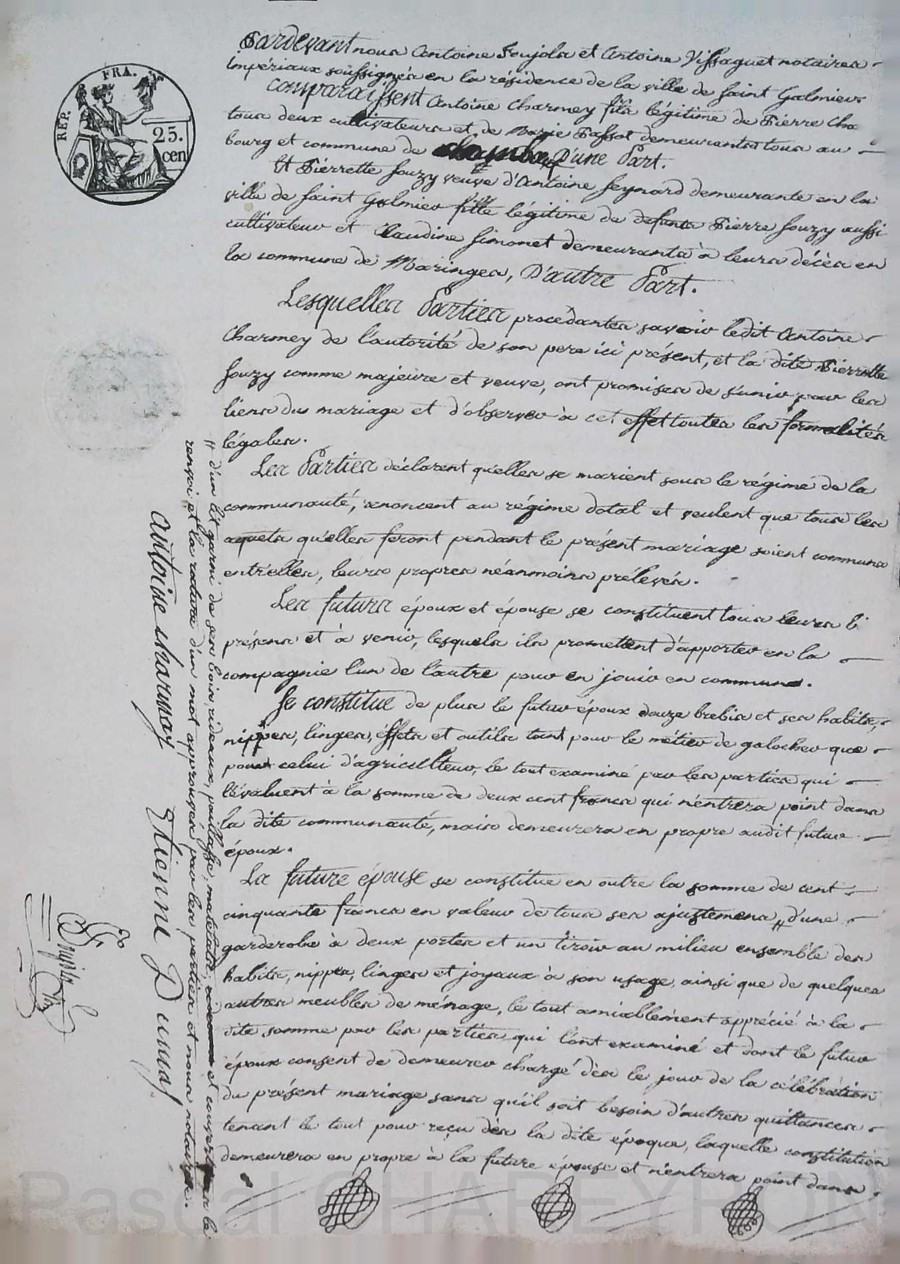 REP. FRA.
25.
cen
Pardevant nous Antoine Pujola et Antoine Vissaguet notaires
impériaux soussignés en la résidence de la ville de Saint Galmier
Comparaissent Antoine Charmey fils légitime de Pierre Cha
tous deux cultivateurs et de Marie demeurants tous au
bourg et commune de D'une Part.
Et Pierrette Souzy veuve d'Antoine Peynard demeurante en la
ville de Saint Galmier fille légitime de defunts Pierre Souzy aussi
cultivateur et Claudine Simonet demeurants à leurs décès en
la commune de Maringes, D'autre Part.
Lesquelles Parties procédantes savoir ledit Antoine
Charmey de l'autorité de son pere ici présent, et la dite Pierrette
Souzy comme majeure et veuve, ont promises de s'unir par les
liens du mariage et d'observer à cet effet toutes les formalités
légales.
Les Parties déclarent qu'elles se marient sous le régime de la
communauté, renoncent au régime dotal et veulent que tous les
aquets qu'elles feront pendant le présent mariage soient communs
entr'elles, leurs propres néanmoins prélevés.
Les futurs époux et épouse se constituent tous leurs b
présens et à venir, lesquels ils promettent d'apporter en la
compagnie l'un de l'autre pour en jouir en commun.
Se constitue de plus le futur époux douze brebis et ses habits,
nippes, linges, effets et outils tant pour le métier de galocher que
pour celui d'agriculteur, le tout examiné par les parties qui
l'évaluent à la somme de deux cent francs qui n'entrera point dans
la dite communauté, mais demeurera en propre audit futur
époux.
La future épouse se constitue en outre la somme de cent
cinquante francs en valeur de tous ses ajustemens, d'une
garderobe à deux portes et un tiroir au milieu ensemble des
habits, nippes, linges et joyaux à son usage, ainsi que de quelques
autres meubles de ménage, le tout amiablement apprécié à la
dite somme par les parties qui l'ont examiné et dont le futur
époux consent de demeurer chargé dès le jour de la célébration
du présent mariage sans qu'il soit besoin d'autres quittances
tenant le tout pour reçu dès la dite époque, laquelle constitution
demeurera en propre à la future épouse et n'entrera point dans
d'un lit garni de ses bois, rideaux, paillasse, matelats, et couverture le
renvoi et la rature d'un mot approuvés par les parties et nous notaires.
antoine charmey Etienne
Pascal CHAPEYRON